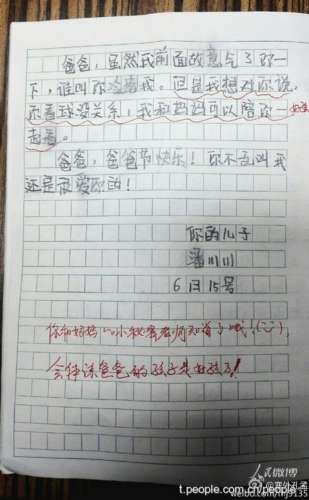 爸爸，虽然我前面故意气了你一
下，谁叫你没陪我。但是我想对你说，
你看球没关系，我和妈妈可以陪你一
起看。
爸爸，爸爸节快乐！你不互叫我
还是很爱你的！
你的儿子
潘川川
6月15号
你和妈妈的小秘密老师知道了哦！
会体谅爸爸的孩子是好孩子！
人民微博
@塞外孔孟
t.people.com.cn/people
weibo.com/mj3135